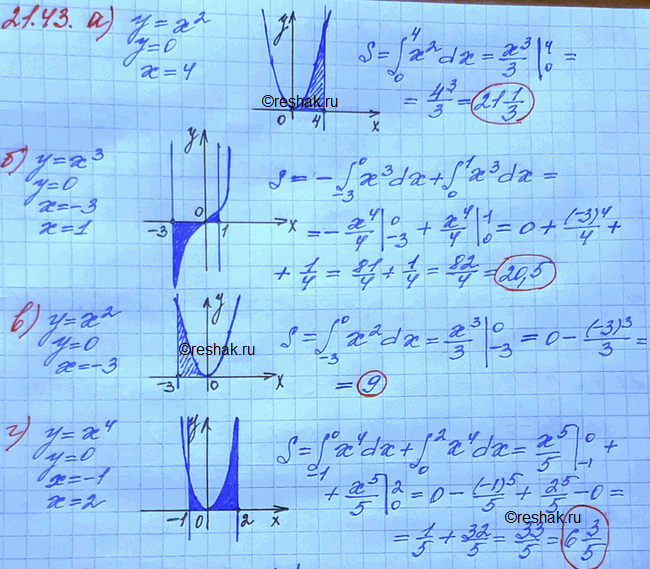 21.43. а) y = x²
y = 0
x = 4
y
0 4 x
©reshak.ru
S = ∫₀⁴ x² dx = x³/3 |₀⁴ =
= 4³/3 = 21 1/3
б) y = x³
y = 0
x = -3
x = 1
y
-3 0 1 x
S = - ∫₋₃⁰ x³ dx + ∫₀¹ x³ dx =
= - x⁴/4 |₋₃⁰ + x⁴/4 |₀¹ = 0 + (-3)⁴/4 +
+ 1/4 = 81/4 + 1/4 = 82/4 = 20,5
в) y = x²
y = 0
x = -3
y
©reshak.ru
-3 0 x
S = ∫₋₃⁰ x² dx = x³/3 |₋₃⁰ = 0 - (-3)³/3 =
= 9
г) y = x⁴
y = 0
x = -1
x = 2
y
-1 0 2 x
S = ∫₋₁⁰ x⁴ dx + ∫₀² x⁴ dx = x⁵/5 |₋₁⁰ +
+ x⁵/5 |₀² = 0 - (-1)⁵/5 + 2⁵/5 - 0 =
©reshak.ru
= 1/5 + 32/5 = 33/5 = 6 3/5